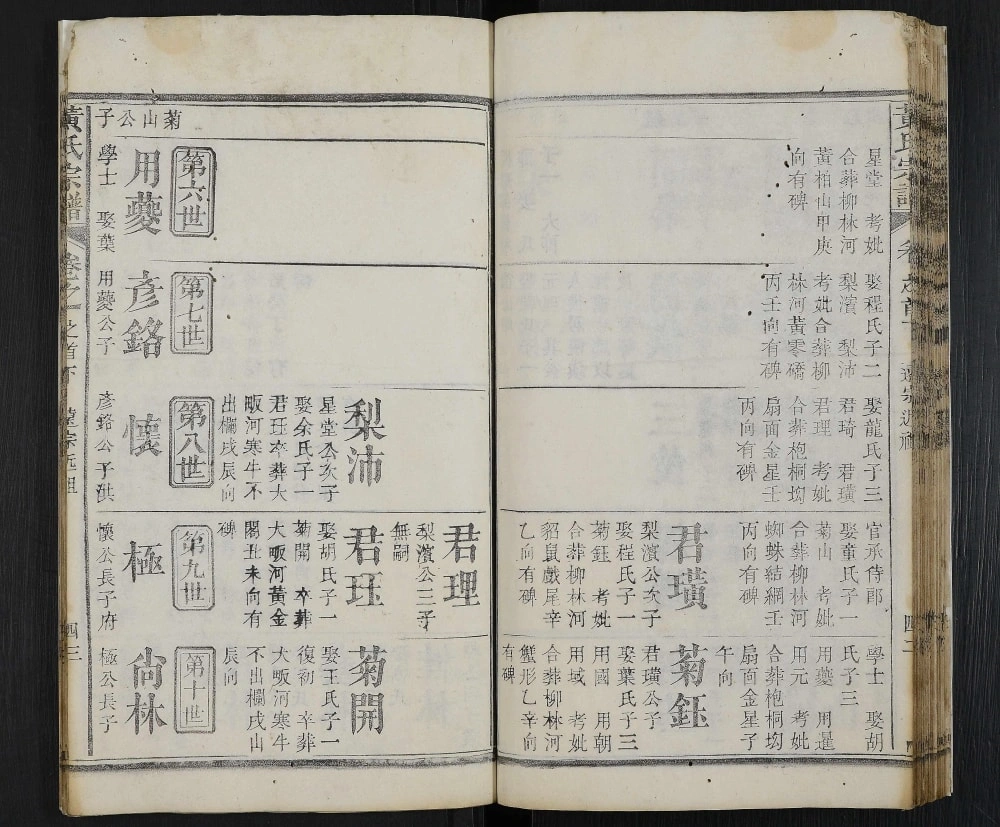 黃氏宗譜 卷之首下 遠宗近祖 四二
星堂 考妣
合葬柳林河
黃柏山甲庚
向有碑
娶程氏子二
梨濱 梨沛
考妣合葬柳
林河黃零礄
丙壬向有碑
娶龍氏子三
君琦 君璜
君理 考妣
合葬枹桐坳
扇面金星壬
丙向有碑
官承侍郎
娶童氏子一
菊山 考妣
合葬柳林河
蜘蛛結網壬
丙向有碑
君璜
梨濱公次子
娶程氏子一
菊鈺 考妣
合葬柳林河
貂鼠戲尾辛
乙向有碑
學士 娶胡
氏子三
用夔 用暹
用元 考妣
合葬枹桐坳
扇面金星子
午向
菊鈺
君璜公子
娶葉氏子三
用國 用朝
用域 考妣
合葬柳林河
蟹形乙辛向
有碑
梨沛
星堂公次子
娶余氏子一
君玨 卒葬大
畈河寒牛不
出欄戌辰向
君理
梨濱公三子
無嗣
君玨
娶胡氏子一
菊開 卒葬
大畈河黃金
閣丑未向有
碑
菊開
娶王氏子一
復初 卒葬
大畈河寒牛
不出欄戌山
辰向
第六世
第七世
第八世
第九世
第十世
菊山公子
用夔
學士 娶葉
彥銘
用夔公子
懷
彥銘公子洪
極
懷公長子府
尙林
極公長子
黃氏宗譜 卷之一 之首下 遠宗近祖 四三